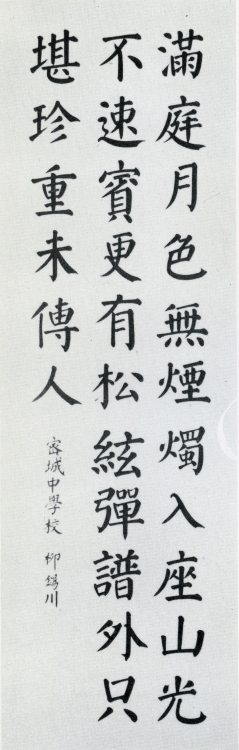 滿庭月色無煙燭入座山光
不速賓更有松絃彈譜外只
堪珍重未傳人
密城中學校 柳錫川